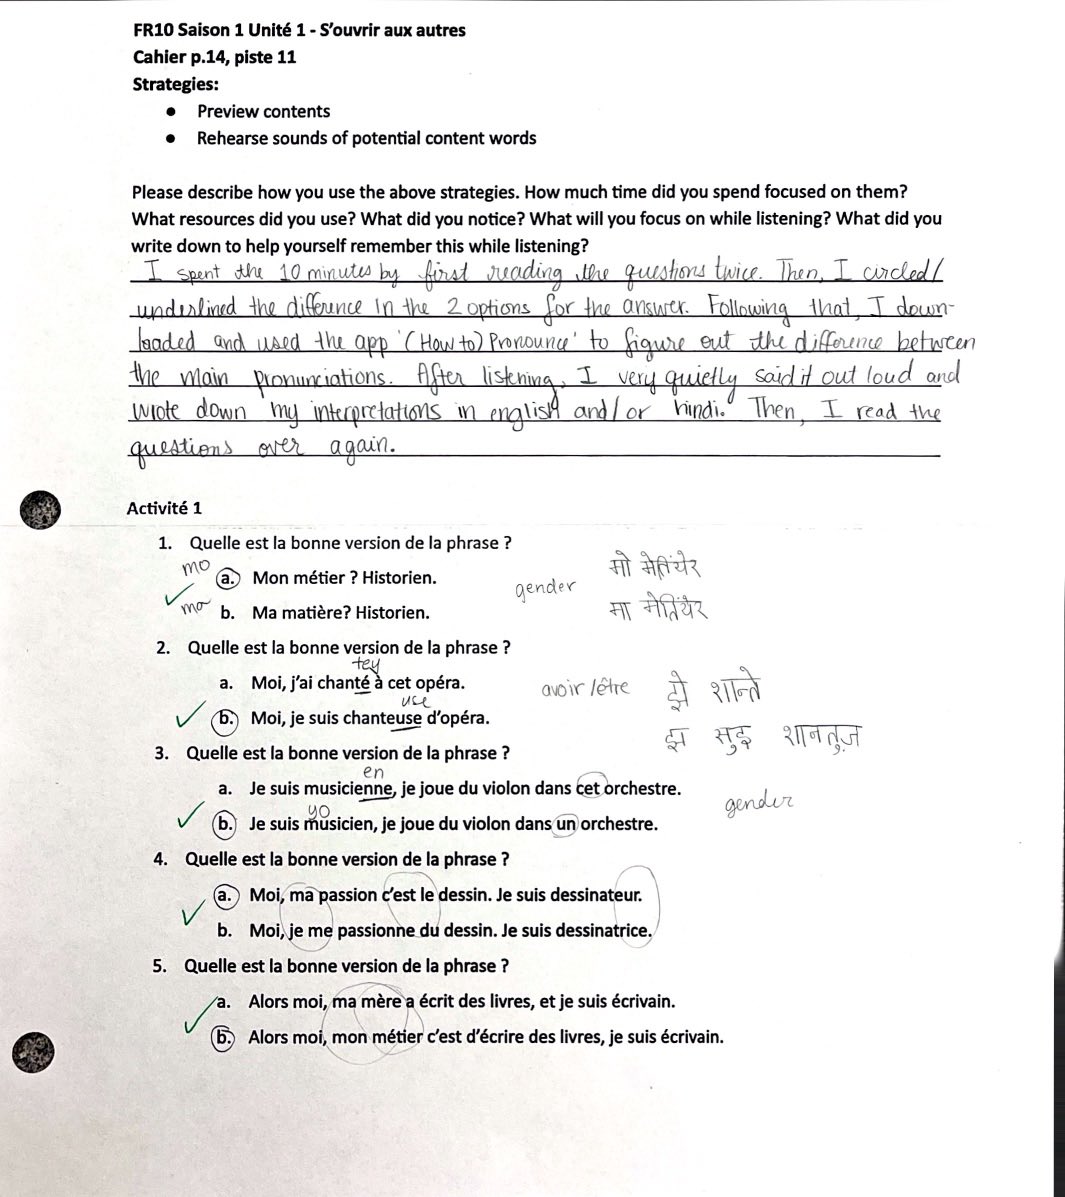 FR10 Saison 1 Unité 1 - S'ouvrir aux autres
Cahier p.14, piste 11
Strategies:
• Preview contents
• Rehearse sounds of potential content words
Please describe how you use the above strategies. How much time did you spend focused on them?
What resources did you use? What did you notice? What will you focus on while listening? What did you
write down to help yourself remember this while listening?
I spent the 10 minutes by first reading the questions twice. Then, I circled/
underlined the difference in the 2 options for the answer. Following that, I down-
loaded and used the app '(How to) Pronounce' to figure out the difference between
the main pronunciations. After listening, I very quietly said it out loud and
wrote down my interpretations in english and/or hindi. Then, I read the
questions over again.
Activité 1
1. Quelle est la bonne version de la phrase ?
mo
a. Mon métier ? Historien.
मो मेतियेर
gender
ma
b. Ma matière? Historien.
मा मेतियेर
2. Quelle est la bonne version de la phrase ?
tey
a. Moi, j'ai chanté à cet opéra.
avoir/être
झे शान्ते
use
b. Moi, je suis chanteuse d'opéra.
झ सुइ शानतुज़
3. Quelle est la bonne version de la phrase ?
en
a. Je suis musicienne, je joue du violon dans cet orchestre.
gender
yo
b. Je suis musicien, je joue du violon dans un orchestre.
4. Quelle est la bonne version de la phrase ?
a. Moi, ma passion c'est le dessin. Je suis dessinateur.
b. Moi, je me passionne du dessin. Je suis dessinatrice.
5. Quelle est la bonne version de la phrase ?
a. Alors moi, ma mère a écrit des livres, et je suis écrivain.
b. Alors moi, mon métier c'est d'écrire des livres, je suis écrivain.